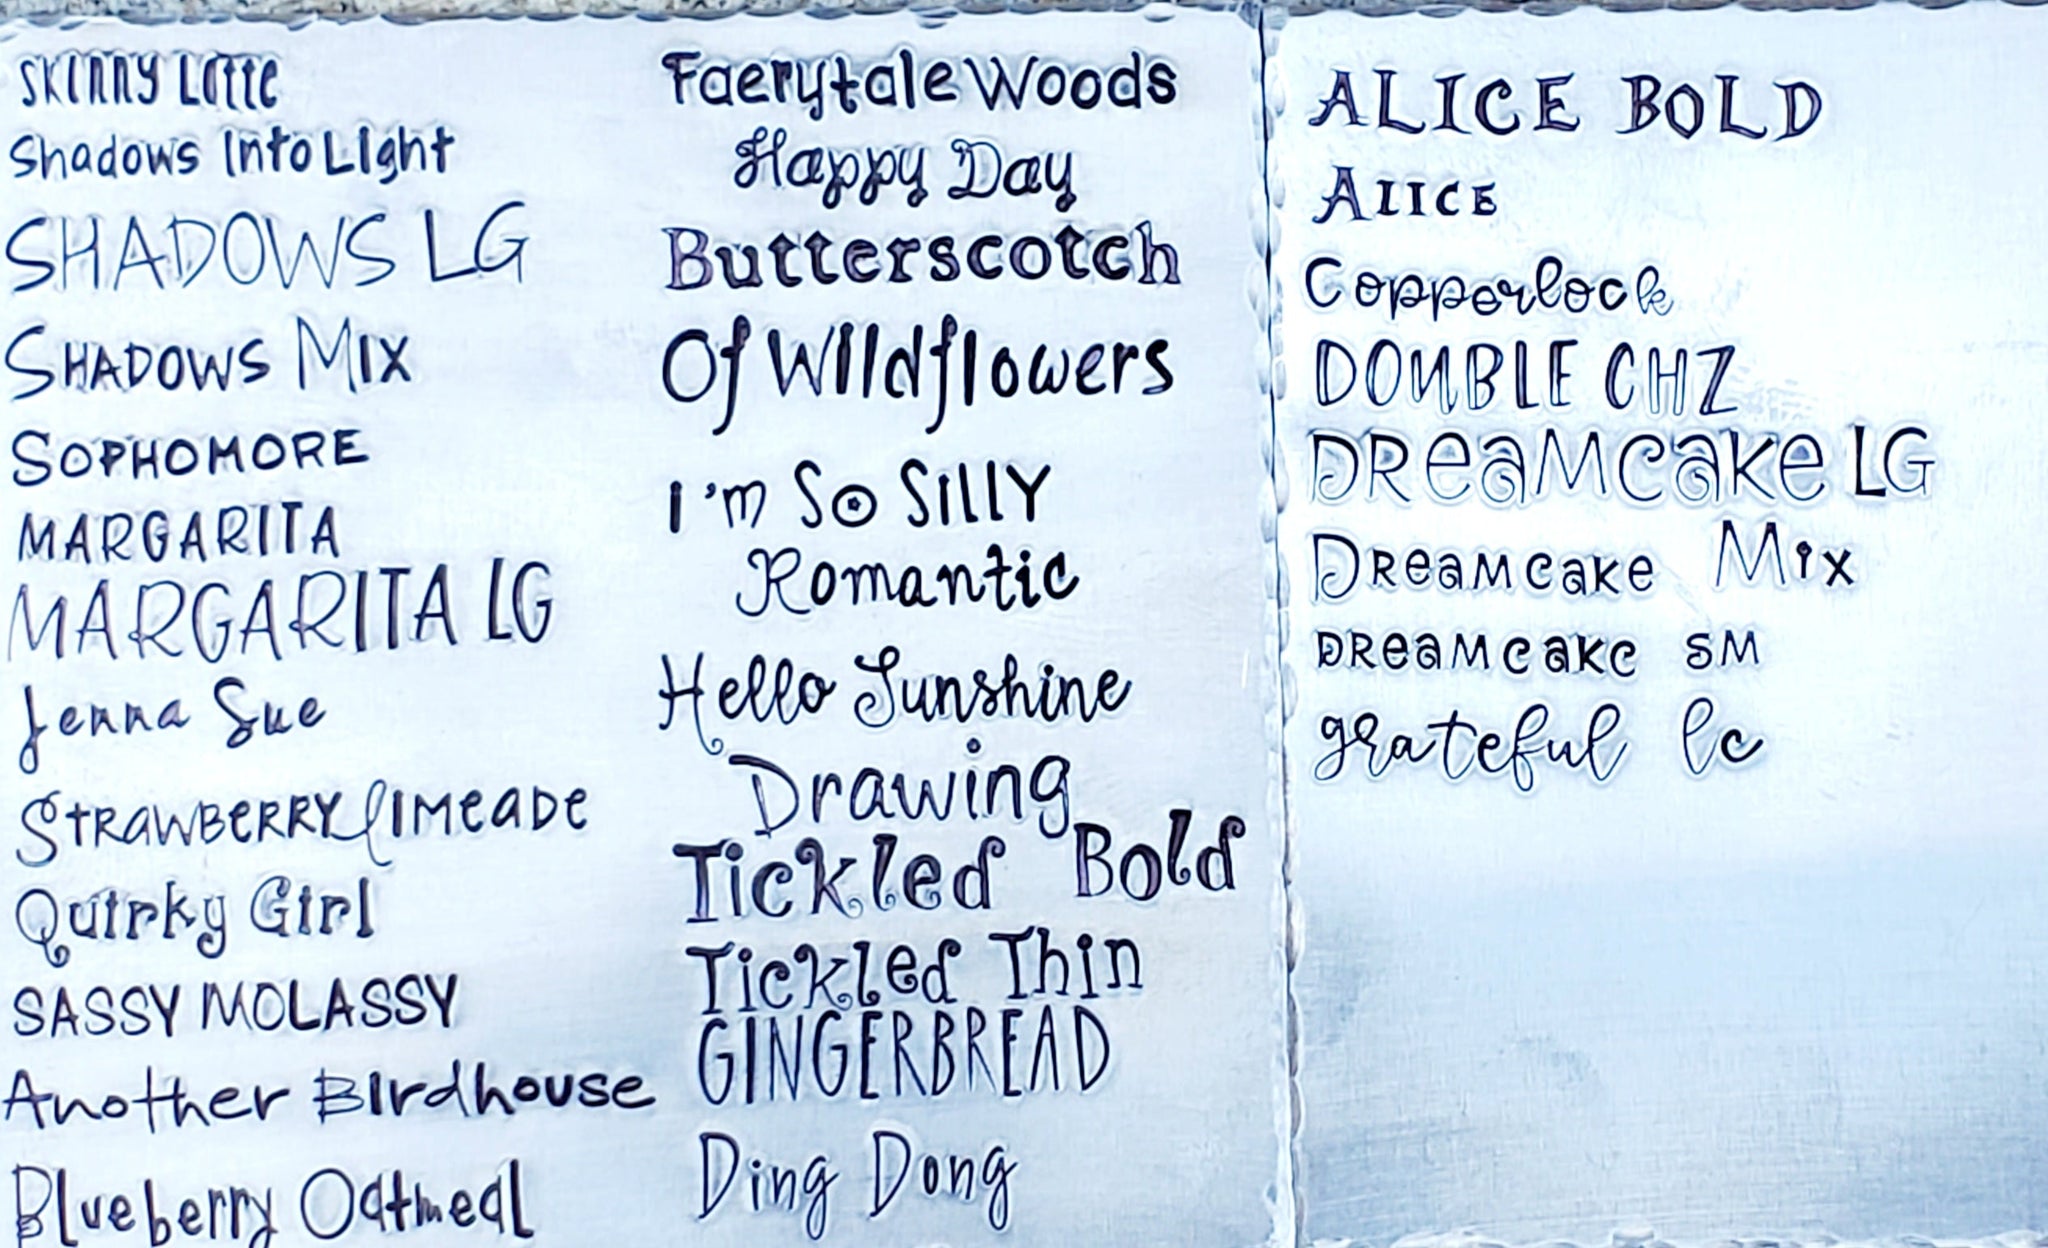 SKINNY LATTE
Shadows Into Light
SHADOWS LG
SHADOWS MIX
SOPHOMORE
MARGARITA
MARGARITA LG
Jenna Sue
STRAWBERRY LIMEADE
Quirky Girl
SASSY MOLASSY
Another Birdhouse
Blueberry Oatmeal
Faerytale Woods
Happy Day
Butterscotch
Of Wildflowers
I'm So SILLY
Romantic
Hello Sunshine
Drawing
Tickled Bold
Tickled Thin
GINGERBREAD
Ding Dong
ALICE BOLD
ALICE
Copperlock
DOUBLE CHZ
DReamcake LG
DReamcake Mix
DReamcake SM
grateful lc